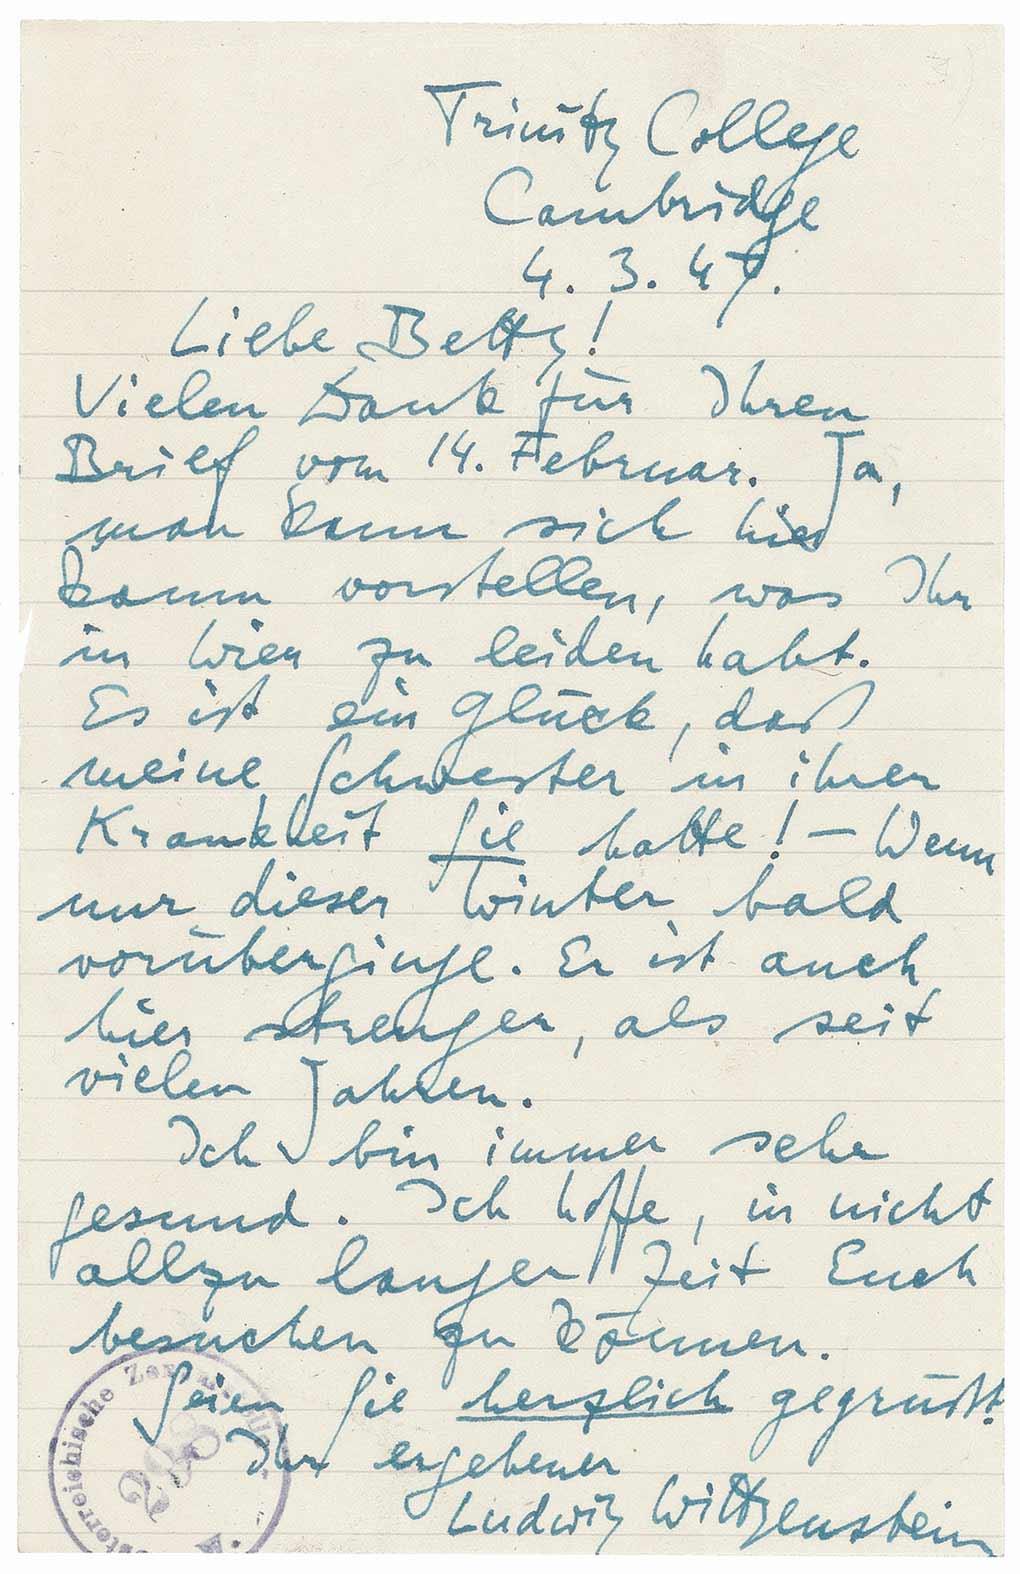 Trinity College
Cambridge
4. 3. 47.
Liebe Betty!
Vielen Dank für Ihren
Brief vom 14. Februar. Ja,
man kann sich hier
kaum vorstellen, was Ihr
in Wien zu leiden habt.
Es ist ein Glück, daß
meine Schwester in ihrer
Krankheit Sie hatte! – Wenn
nur dieser Winter bald
vorüberginge. Er ist auch
hier strenger, als seit
vielen Jahren.
Ich bin immer sehr
gesund. Ich hoffe, in nicht
allzu langer Zeit Euch
besuchen zu können.
Seien Sie herzlich gegrüßt.
Ihr ergebener
Ludwig Wittgenstein
sterreichische
298